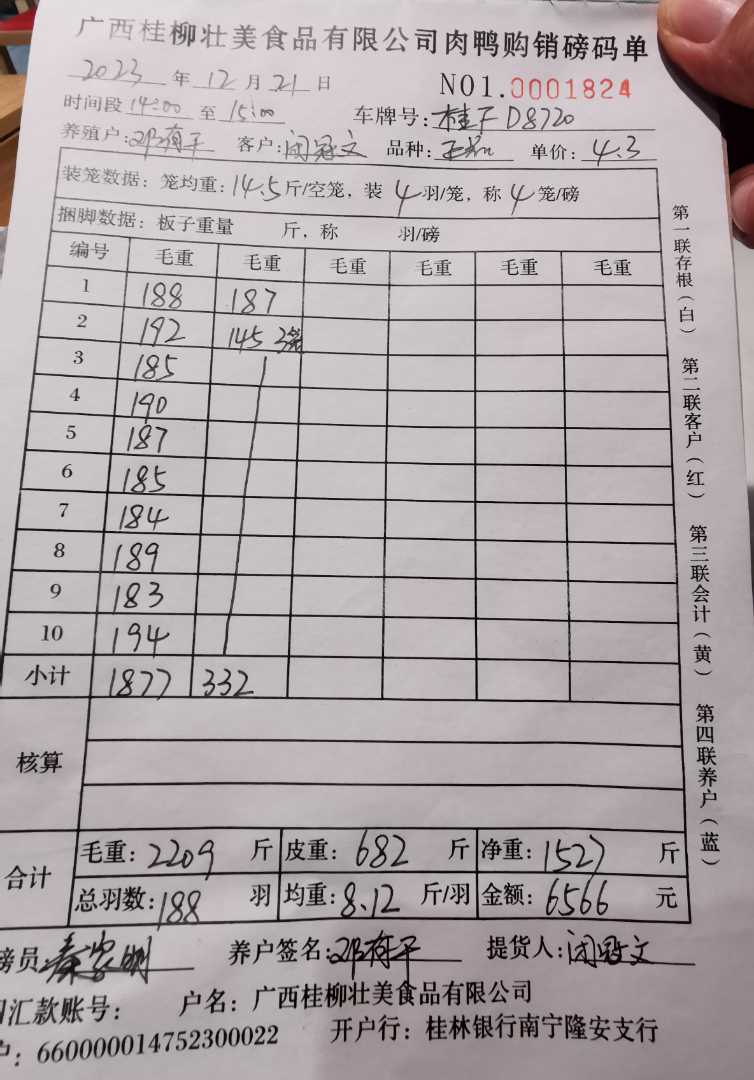 广西桂柳壮美食品有限公司肉鸭购销磅码单
2023 年 12 月 21 日 NO1.0001824
时间段 14:00 至 15:00 车牌号: 桂F D8720
养殖户: 邓有平 客户: 闭冠文 品种: 单价: 4.3
装笼数据: 笼均重: 14.5 斤/空笼, 装 4 羽/笼, 称 4 笼/磅
捆脚数据: 板子重量 斤, 称 羽/磅
编号 毛重 毛重 毛重 毛重 毛重 毛重
1 188 187
2 192 145 3笼
3 185
4 190
5 187
6 185
7 184
8 189
9 183
10 194
小计 1877 332
核算
合计 毛重: 2209 斤 皮重: 682 斤 净重: 1527 斤
总羽数: 188 羽 均重: 8.12 斤/羽 金额: 6566 元
磅员 秦家明 养户签名: 邓有平 提货人: 闭冠文
汇款账号: 户名: 广西桂柳壮美食品有限公司
户: 660000014752300022 开户行: 桂林银行南宁隆安支行
第一联存根(白) 第二联客户(红) 第三联会计(黄) 第四联养户(蓝)